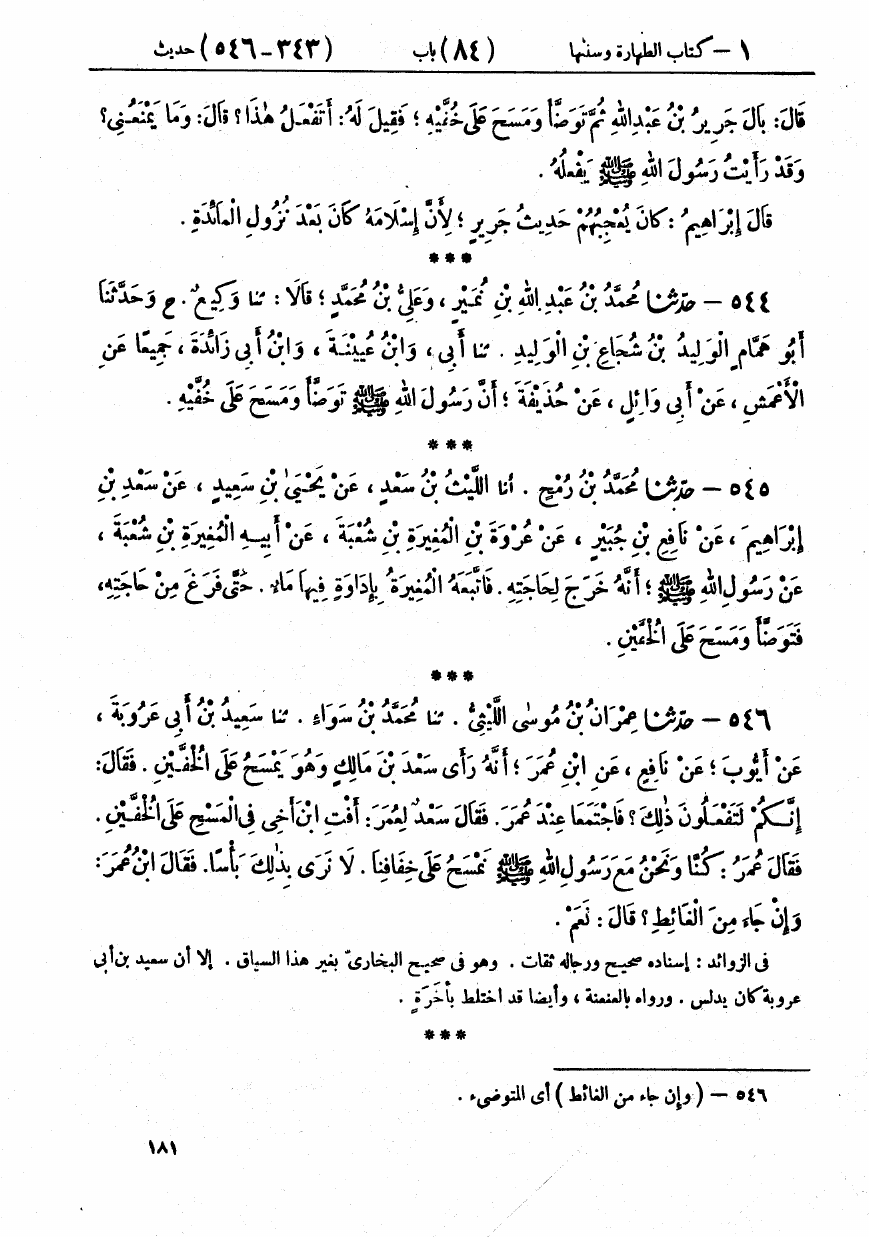 ١ – كتاب الطهارة وسننها (٨٤) باب (٣٤٣ – ٥٤٦) حديث
قَالَ: بَالَ جَرِيرُ بْنُ عَبْدِاللهِ ثُمَّ تَوَضَّأَ وَمَسَحَ عَلَى خُفَّيْهِ ؛ فَقِيلَ لَهُ: أَتَفْعَلُ هٰذَا؟ قَالَ: وَمَا يَمْنَعُنِي؟
وَقَدْ رَأَيْتُ رَسُولَ اللهِ ﷺ يَفْعَلُهُ .
قَالَ إِبْرَاهِيمُ : كَانَ يُعْجِبُهُمْ حَدِيثُ جَرِيرٍ ؛ لِأَنَّ إِسْلَامَهُ كَانَ بَعْدَ نُزُولِ الْمَائِدَةِ .
***
٥٤٤ – حَدَّثَنَا مُحَمَّدُ بْنُ عَبْدِ اللهِ بْنِ نُمَيْرٍ ، وَعَلِيُّ بْنُ مُحَمَّدٍ ؛ قَالَا : ثنا وَكِيعٌ . ح وَحَدَّثَنَا
أَبُو هَمَّامٍ الْوَلِيدُ بْنُ شُجَاعِ بْنِ الْوَلِيدِ . ثنا أَبِي ، وَابْنُ عُيَيْنَةَ ، وَابْنُ أَبِي زَائِدَةَ ، جَمِيعًا عَنِ
الْأَعْمَشِ ، عَنْ أَبِي وَائِلٍ ، عَنْ حُذَيْفَةَ ؛ أَنَّ رَسُولَ اللهِ ﷺ تَوَضَّأَ وَمَسَحَ عَلَى خُفَّيْهِ .
***
٥٤٥ – حَدَّثَنَا مُحَمَّدُ بْنُ رُمْحٍ . أنا اللَّيْثُ بْنُ سَعْدٍ ، عَنْ يَحْيَىٰ بْنِ سَعِيدٍ ، عَنْ سَعْدِ بْنِ
إِبْرَاهِيمَ ، عَنْ نَافِعِ بْنِ جُبَيْرٍ ، عَنْ عُرْوَةَ بْنِ الْمُغِيرَةِ بْنِ شُعْبَةَ ، عَنْ أَبِيهِ الْمُغِيرَةِ بْنِ شُعْبَةَ ،
عَنْ رَسُولِ اللهِ ﷺ ؛ أَنَّهُ خَرَجَ لِحَاجَتِهِ . فَاتَّبَعَهُ الْمُغِيرَةُ بِإِدَاوَةٍ فِيهَا مَاءٌ . حَتَّى فَرَغَ مِنْ حَاجَتِهِ،
فَتَوَضَّأَ وَمَسَحَ عَلَى الْخُفَّيْنِ .
***
٥٤٦ – حَدَّثَنَا عِمْرَانُ بْنُ مُوسَى اللَّيْثِيُّ . ثنا مُحَمَّدُ بْنُ سَوَاءٍ . ثنا سَعِيدُ بْنُ أَبِي عَرُوبَةَ ،
عَنْ أَيُّوبَ ؛ عَنْ نَافِعٍ ، عَنِ ابْنِ عُمَرَ ؛ أَنَّهُ رَأَى سَعْدَ بْنَ مَالِكٍ وَهُوَ يَمْسَحُ عَلَى الْخُفَّيْنِ . فَقَالَ:
إِنَّكُمْ لَتَفْعَلُونَ ذٰلِكَ ؟ فَاجْتَمَعَا عِنْدَ عُمَرَ. فَقَالَ سَعْدٌ لِعُمَرَ : أَفْتِ ابْنَ أَخِي فِي الْمَسْحِ عَلَى الْخُفَّيْنِ .
فَقَالَ عُمَرُ : كُنَّا وَنَحْنُ مَعَ رَسُولِ اللهِ ﷺ نَمْسَحُ عَلَى خِفَافِنَا . لَا نَرَى بِذٰلِكَ بَأْسًا . فَقَالَ ابْنُ عُمَرَ:
وَإِنْ جَاءَ مِنَ الْغَائِطِ ؟ قَالَ : نَعَمْ .
فى الزوائد : إسناده صحيح ورجاله ثقات . وهو فى صحيح البخارىّ بغير هذا السياق . إلا أن سعيد بن أبى
عروبة كان يدلس . ورواه بالعنعنة ، وأيضا قد اختلط بأَخَرَةٍ .
***
٥٤٦ – (وإن جاء من الغائط) أى المتوضىء .
١٨١